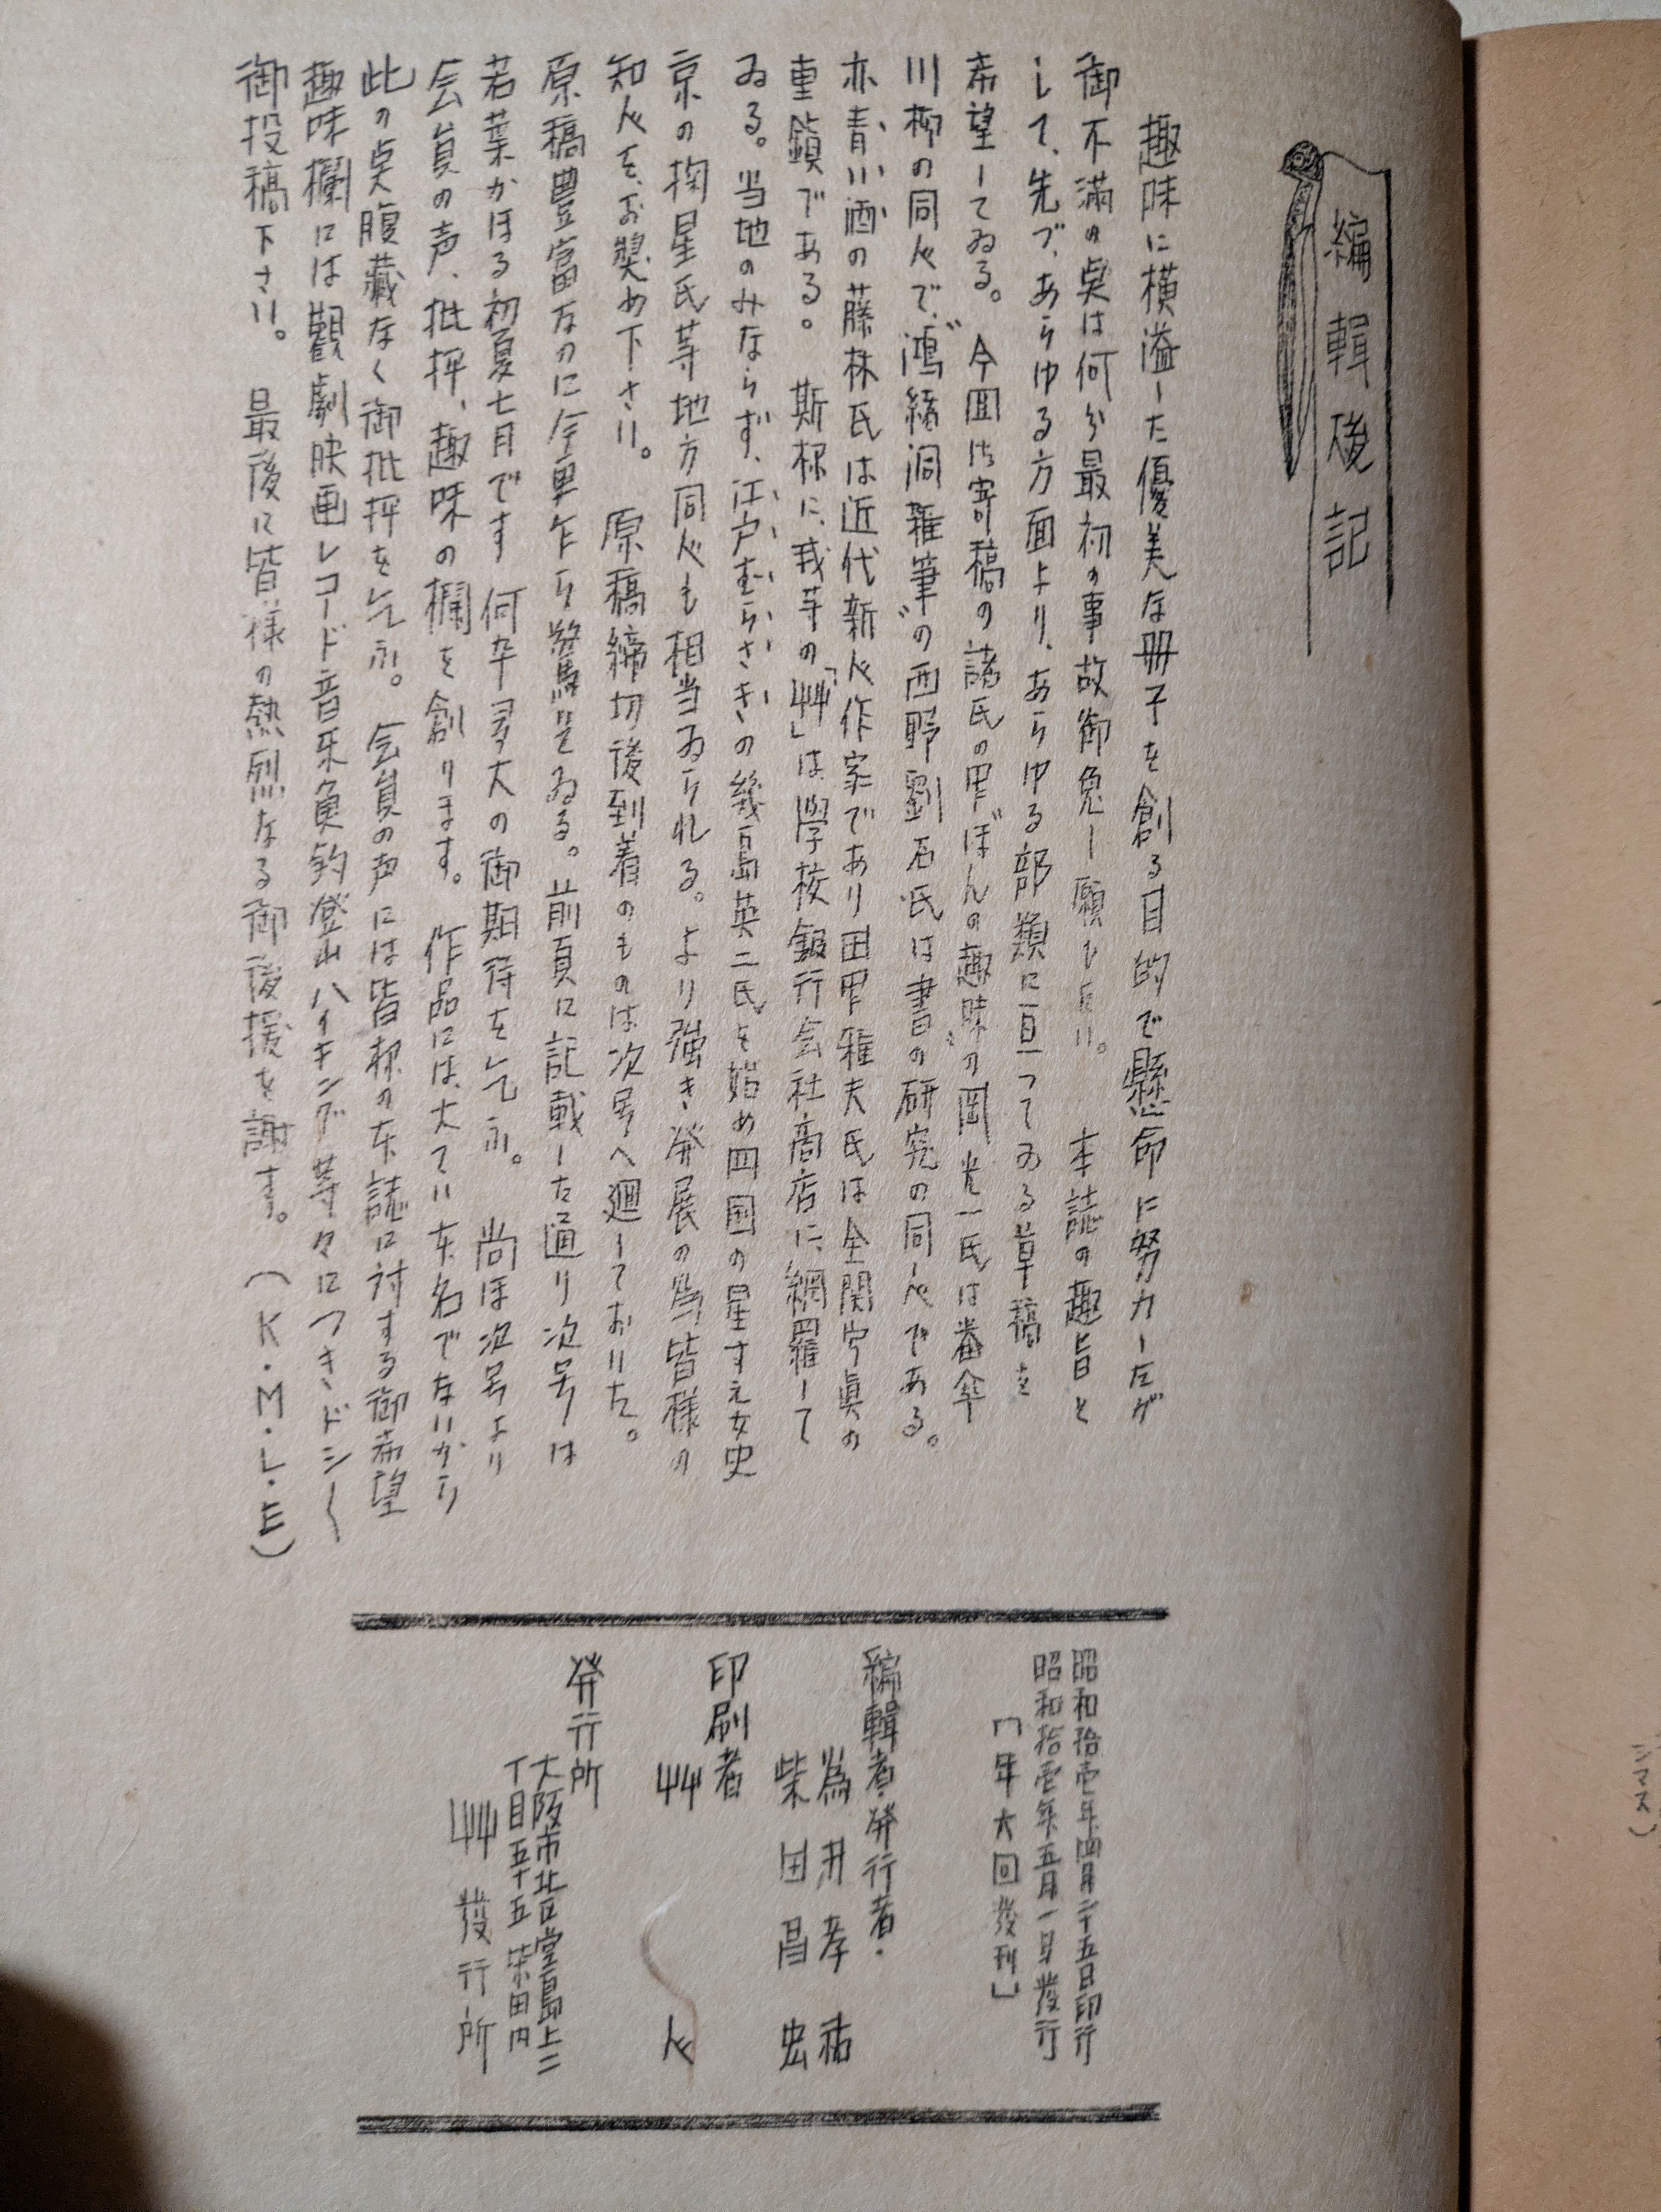 編輯後記
趣味に横溢した優美な冊子を創る目的で懸命に努力したが
御不満の点は何分最初の事故御免し願ひたい。　本誌の趣旨と
して、先づ、あらゆる方面より、あらゆる部類に亘つてゐる草稿を
希望してゐる。　今回は寄稿の諸氏の中"ぼんの趣味"の岡光一氏は番傘
川柳の同人で、"鴻緒洞雜筆"の西野劉石氏は書の研究の同人である。
亦青い酒の藤林氏は近代新人作家であり田中雅夫氏は全関寫眞の
重鎮である。　斯樣に、我等の「艸」は、學校銀行会社商店に、網羅して
ゐる。当地のみならず、江戸むらさきの幾島英二氏を始め四国の星すえ女史
京の掬星氏等地方同人も相当ゐられる。より強き発展の為皆様の
知人を、お奬め下さい。　原稿締切後到着のものは次号へ廻しておいた。
原稿豊富なのに今更乍ら驚いてゐる。前頁に記載した通り次号は
若葉かほる初夏七月です　何卒多大の御期待を乞ふ。　尚ほ次号より
会員の声、批評、趣味の欄を創ります。　作品には、大てい本名でないから
此の点腹蔵なく御批評を乞ふ。　会員の声には皆樣の本誌に対する御希望
趣味欄には觀劇映画レコード音楽魚釣登山ハイキング等々につき、ドシ〱
御投稿下さい。　最後に皆様の熱烈なる御後援を謝す。　（K・M・L・E）
昭和拾壱年四月二十五日印行
昭和拾壱年五月一日發行
「年六回發刊」
編輯者・発行者・
為井孝祐
柴田昌宏
印刷者
艸　人
発行所
大阪市北区堂島上二
丁目五十五　柴田内
艸發行所
シマス）